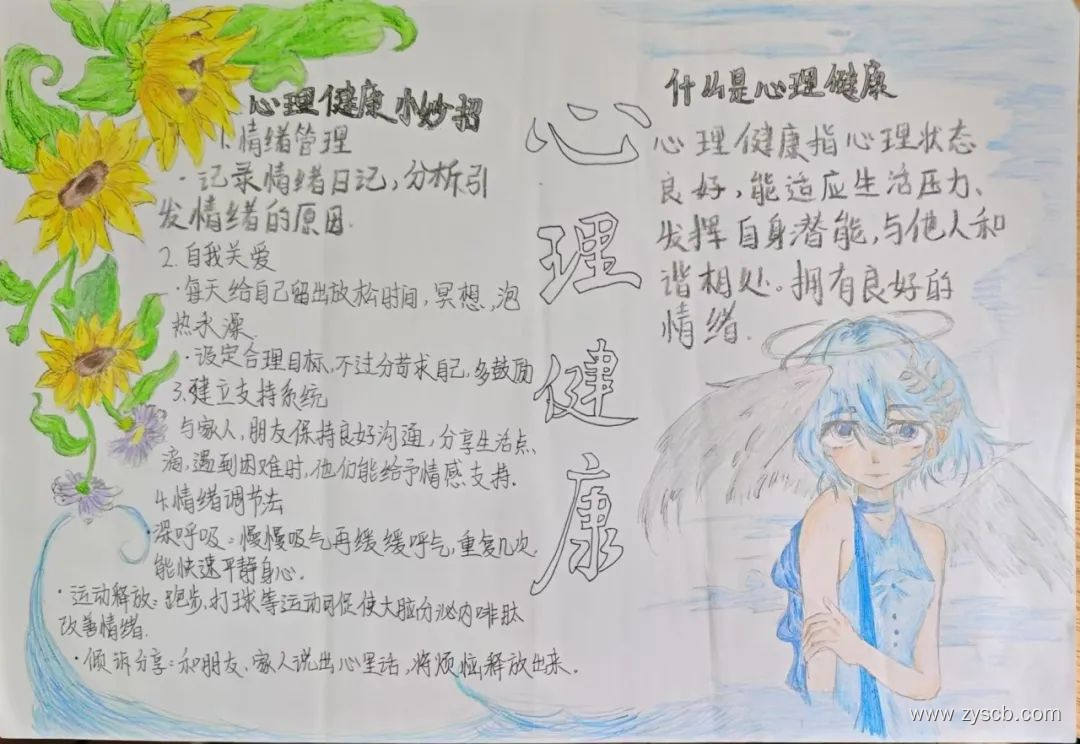 心理健康小妙招
1.情绪管理
·记录情绪日记,分析引
发情绪的原因.
2.自我关爱
·每天给自己留出放松时间,冥想,泡
热水澡.
·设定合理目标,不过分苛求自己,多鼓励
3.建立支持系统
与家人,朋友保持良好沟通,分享生活点
滴,遇到困难时,他们能给予情感支持.
4.情绪调节法
·深呼吸:慢慢吸气再缓缓呼气,重复几次
能快速平静身心.
·运动释放:跑步,打球等运动可促使大脑分泌内啡肽
改善情绪.
·倾诉分享:和朋友、家人说出心里话,将烦恼释放出来.
心
理
健
康
什么是心理健康
心理健康指心理状态
良好,能适应生活压力、
发挥自身潜能,与他人和
谐相处.拥有良好的
情绪.
www.zyscb.com